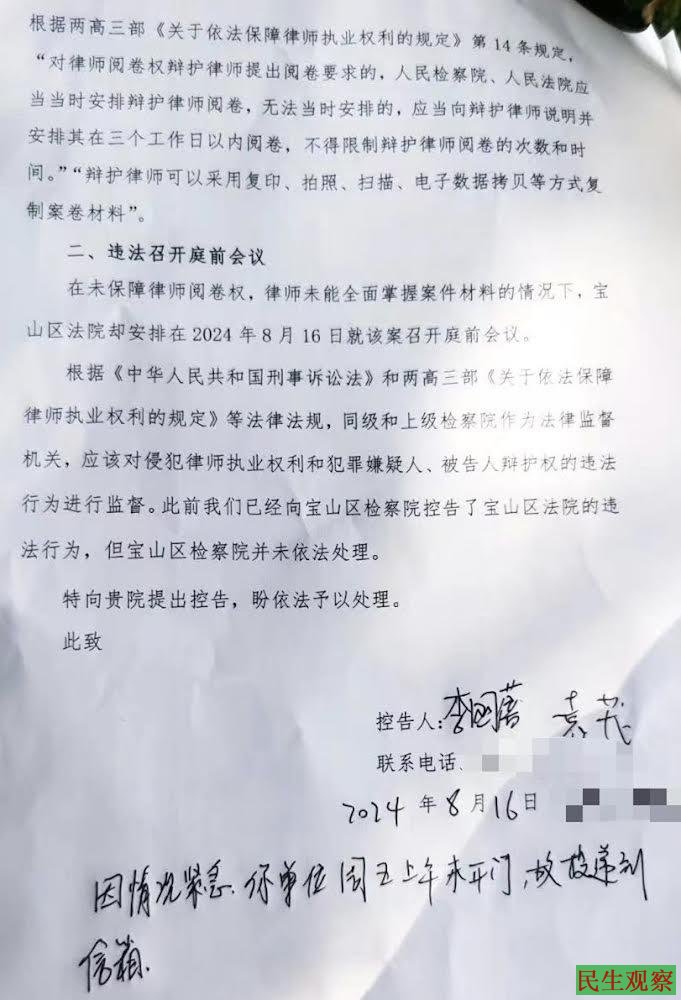 根据两高三部《关于依法保障律师执业权利的规定》第14条规定，
“对律师阅卷权辩护律师提出阅卷要求的，人民检察院、人民法院应
当当时安排辩护律师阅卷，无法当时安排的，应当向辩护律师说明并
安排其在三个工作日以内阅卷，不得限制辩护律师阅卷的次数和时
间。”“辩护律师可以采用复印、拍照、扫描、电子数据拷贝等方式复
制案卷材料”。
二、违法召开庭前会议
在未保障律师阅卷权，律师未能全面掌握案件材料的情况下，宝
山区法院却安排在2024年8月16日就该案召开庭前会议。
根据《中华人民共和国刑事诉讼法》和两高三部《关于依法保障
律师执业权利的规定》等法律法规，同级和上级检察院作为法律监督
机关，应该对侵犯律师执业权利和犯罪嫌疑人、被告人辩护权的违法
行为进行监督。此前我们已经向宝山区检察院控告了宝山区法院的违
法行为，但宝山区检察院并未依法处理。
特向贵院提出控告，盼依法予以处理。
此致
控告人：李国蓓 袁茂
联系电话
2024年8月16日
因情况紧急，你单位周五上午未开门，故投递到
信箱.
民生观察